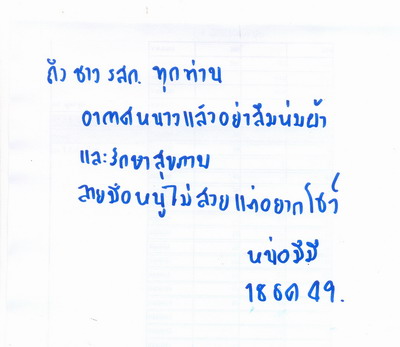 ถึง ชาว รสก. ทุกท่าน
อากาศหนาวแล้วอย่าลืมห่มผ้า
และรักษาสุขภาพ
ลายมือหนูไม่สวยแต่อยากโชว์
หน่อมีมี
18 ธค 49.